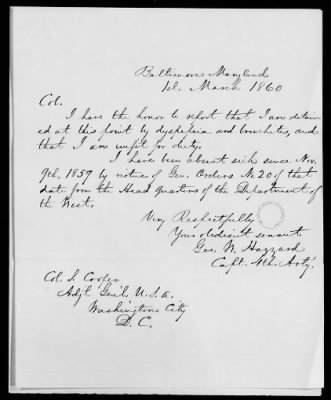 Baltimore Maryland
1st. March 1860
Col.
I have the honor to report that I am detain
ed at this point by dyspepsia and bronchitis, and
that I am unfit for duty.
I have been absent sick since Nov.
9th. 1859 by virtue of Gen. Orders No. 20 of that
date from the Head quarters of the Department of
the West.
Very Respectfully
Your obedient servant
Geo. W. Hazzard
Capt. 4th. Arty.
Col. S. Cooper
Adjt. Gen'l. U.S.A.
Washington City
D.C.